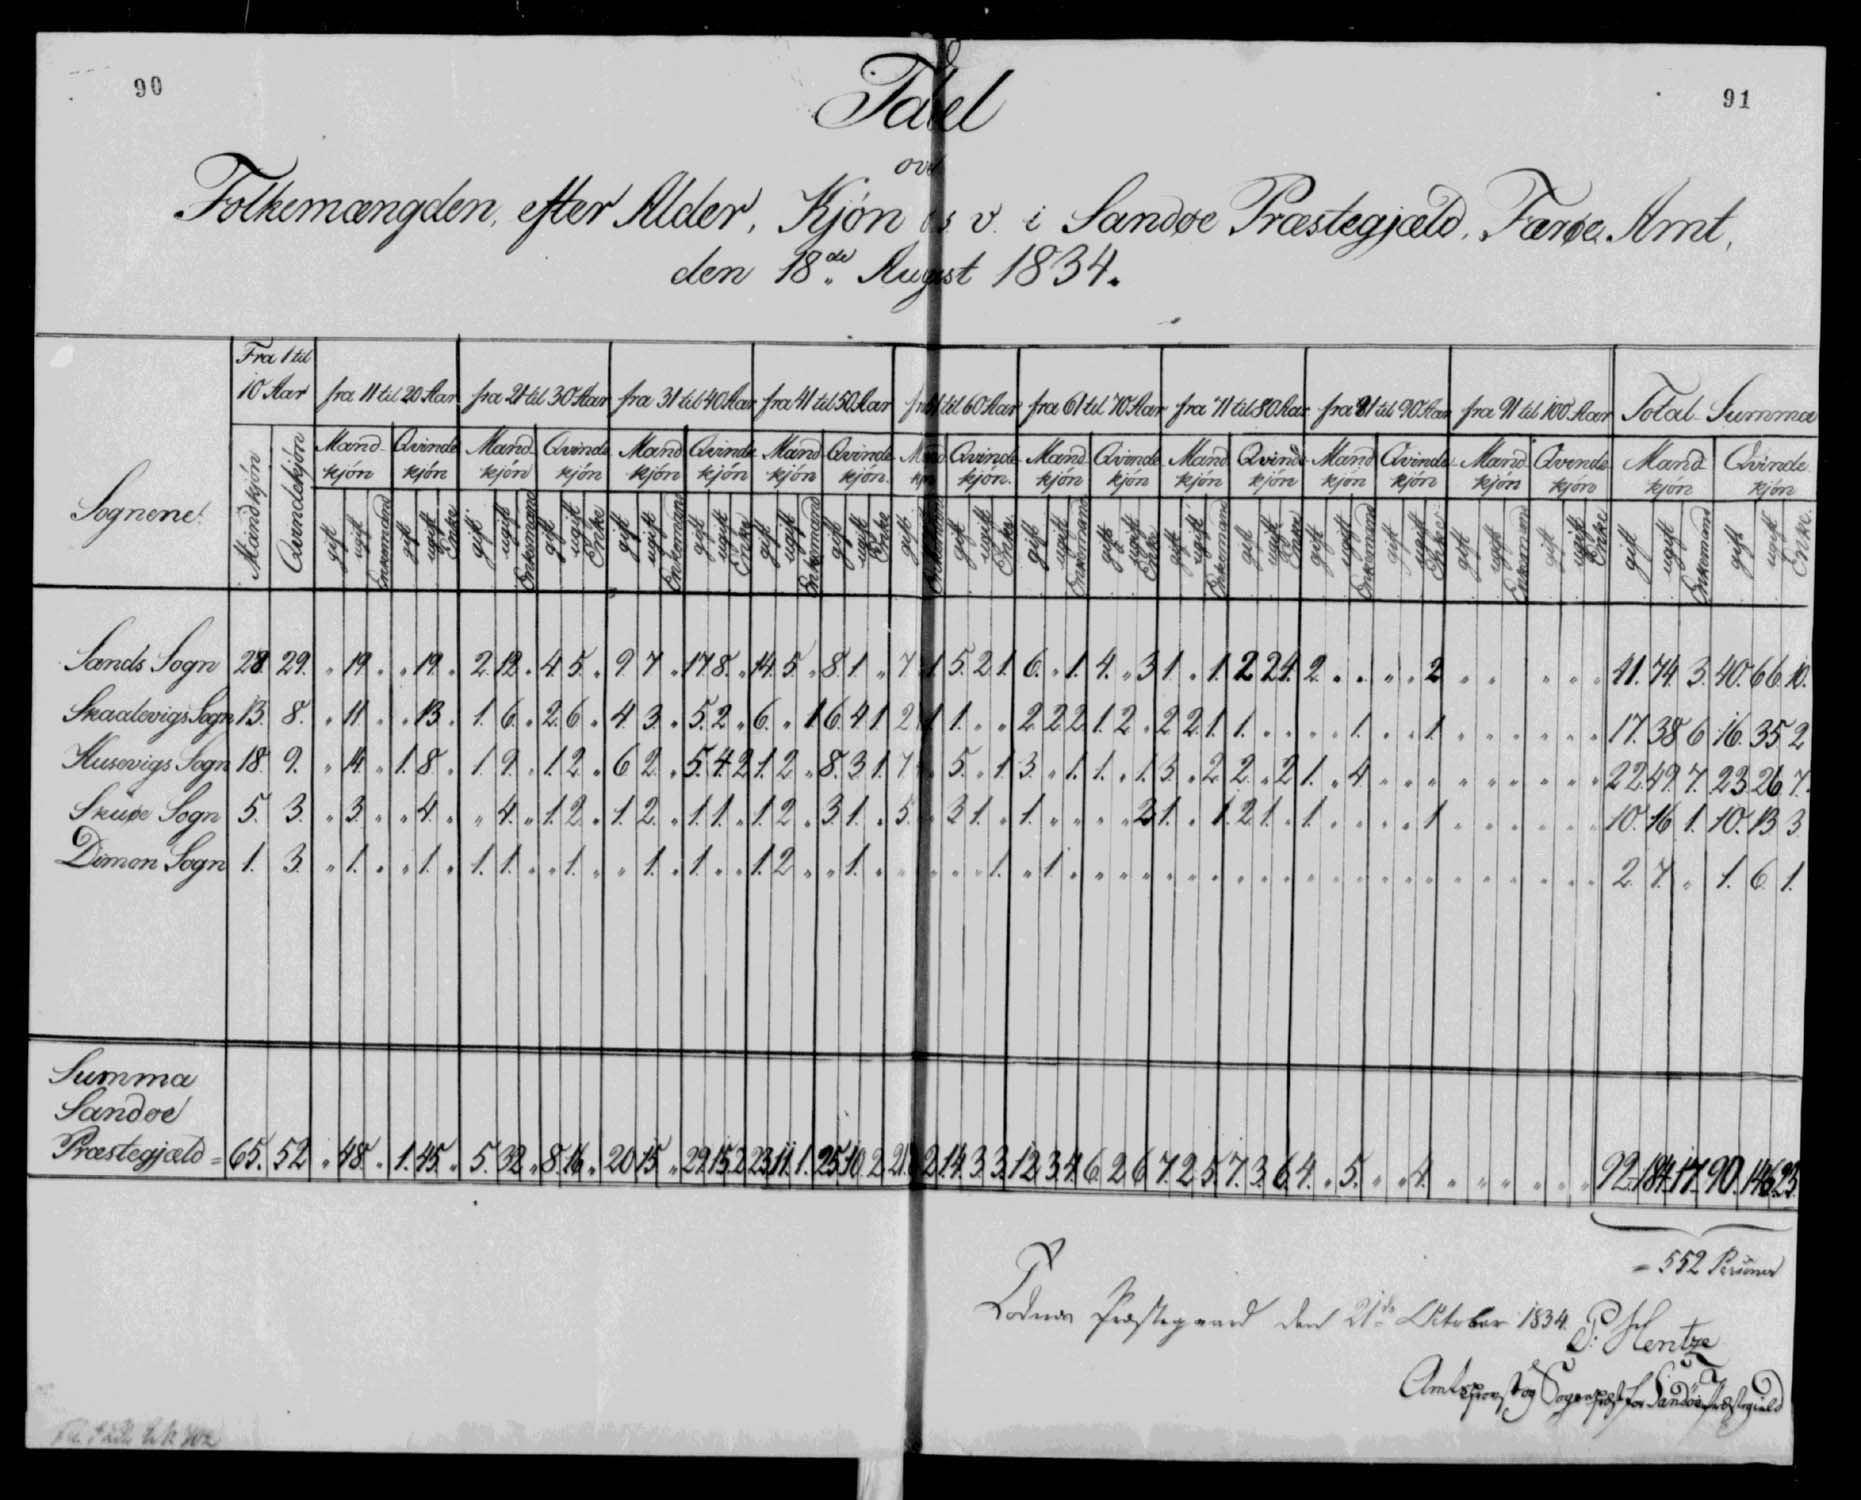 90
91
Tabel
over
Folkemængden, efter Alder, Kjön o. s. v. i Sandøe Præstegjæld, Færøe Amt,
den 18de August 1834.
Sognene.
Fra 1 til 10 Aar
fra 11 til 20 Aar fra 21 til 30 Aar fra 31 til 40 Aar fra 41 til 50 Aar fra 51 til 60 Aar fra 61 til 70 Aar fra 71 til 80 Aar fra 81 til 90 Aar fra 91 til 100 Aar Total-Summa
Mandkjön Qvindekjön Mandkjön Qvindekjön Mandkjön Qvindekjön Mandkjön Qvindekjön Mandkjön Qvindekjön Mandkjön Qvindekjön Mandkjön Qvindekjön Mandkjön Qvindekjön Mandkjön Qvindekjön Mandkjön Qvindekjön Mandkjön Qvindekjön
gift ugift Enkemand gift ugift Enke gift ugift Enkemand gift ugift Enke gift ugift Enkemand gift ugift Enke gift ugift Enkemand gift ugift Enke gift Enkemand gift ugift Enke gift ugift Enkemand gift ugift Enke gift ugift Enkemand gift ugift Enke gift ugift Enkemand gift ugift Enke gift ugift Enkemand gift ugift Enke gift ugift Enkemand gift ugift Enke
Sands Sogn 28 29. " 19. " " 19. " 2. 12. " 4. 5. " 9. 7. " 17. 8. " 14. 5. " 8. 1. " 7 1 5. 2. 1. 6. " 1. 4. " 3 1. " 1. 2 2 4. 2. " " " " 2 " " " " " " 41. 74. 3. 40. 66. 10.
Skaalevigs Sogn 13. 8. " 11. " " 13. " 1. 6. " 2. 6. " 4. 3. " 5. 2. " 6. " 1 6 4 1 2 1 1. " " 2 2 2 1. 2. " 2 2 1 1. " " " " 1. " " 1 " " " " " " 17. 38 6 16. 35 2
Husevigs Sogn 18. 9. " 14. " 1. 8. " 1. 9. " 1. 2. " 6 2. " 5. 4. 2 1. 2. " 8. 3. 1. 7 " 5. " 1. 3. " 1. 1. " 1. 3. " 2 2. " 2 1. " 4 " " " " " " " " " 22. 49. 7. 23. 26. 7.
Skuøe Sogn 5. 3. " 3. " " 4. " " 4. " 1. 2. " 1. 2. " 1. 1. " 1. 2. " 3. 1. " 5. " 3 1. " 1. " " " " 2 1. " 1. 2 1. " 1. " " " " 1 " " " " " " 10. 16 1. 10. 13 3.
Dimon Sogn 1. 3. " 1. " " 1. " 1. 1. " " 1. " " 1. " 1. " " 1. 2 " " 1. " " " " " 1. " 1. " " " " " " " " " " " " " " " " " " " " " " 2. 7. " 1. 6. 1.
Summa
Sandøe
Præstegjæld = 65. 52 " 48. " 1. 45. " 5. 32. " 8. 16. " 20. 15. " 29. 15. 2. 23. 11. 1. 25. 10. 2. 21. 2. 14. 3. 3. 12. 3. 4. 6. 2. 6 7. 2. 5. 7. 3. 6. 4. " 5. " " 4. " " " " " " 92. 184. 17. 90. 146. 23.
= 552 Personer
Præstegaard den 21de October 1834.
P. Hentze
Amtsprovst og Sognepræst for Sandöe Præstegield